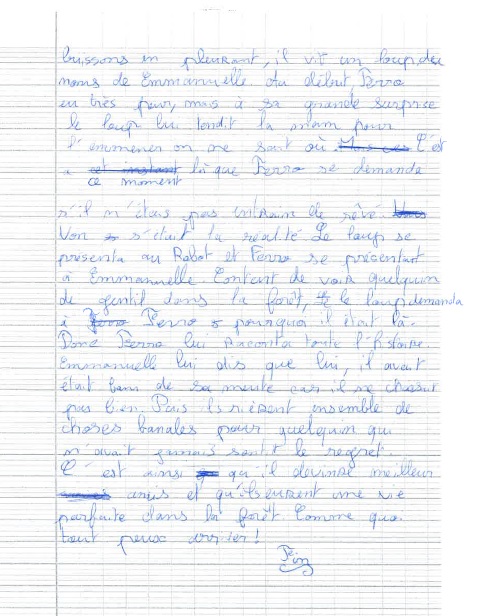 buissons en pleurant, il vit un loup du
noms de Emmanuelle. Au début, Ferro
eu très peur, mais à sa grande surprise
le loup lui tendit la main pour
l'emmener on ne sait où. C'est
à cet instant là que Ferro se demanda
ce moment
s'il n'étais pas entrain de rêvé.
Non s'était la réalité. Le loup se
présenta au Robot et Ferro se présentait
à Emmanuelle. Content de voir quelqu'un
de gentil dans la forêt, le loup demanda
à Ferro pourquoi il était là.
Donc Ferro lui raconta toute l'histoire.
Emmanuelle lui dis que lui, il avait
était bani de sa meute car il ne chassait
pas bien. Puis ils rièrent ensemble de
choses banales pour quelqu'un qui
n'avait jamais sentit le regret.
C'est ainsi qu'il devinse meilleur
amis et qu'ils eurent une vie
parfaite dans la forêt. Comme quoi
tout peux arriver !
Fin